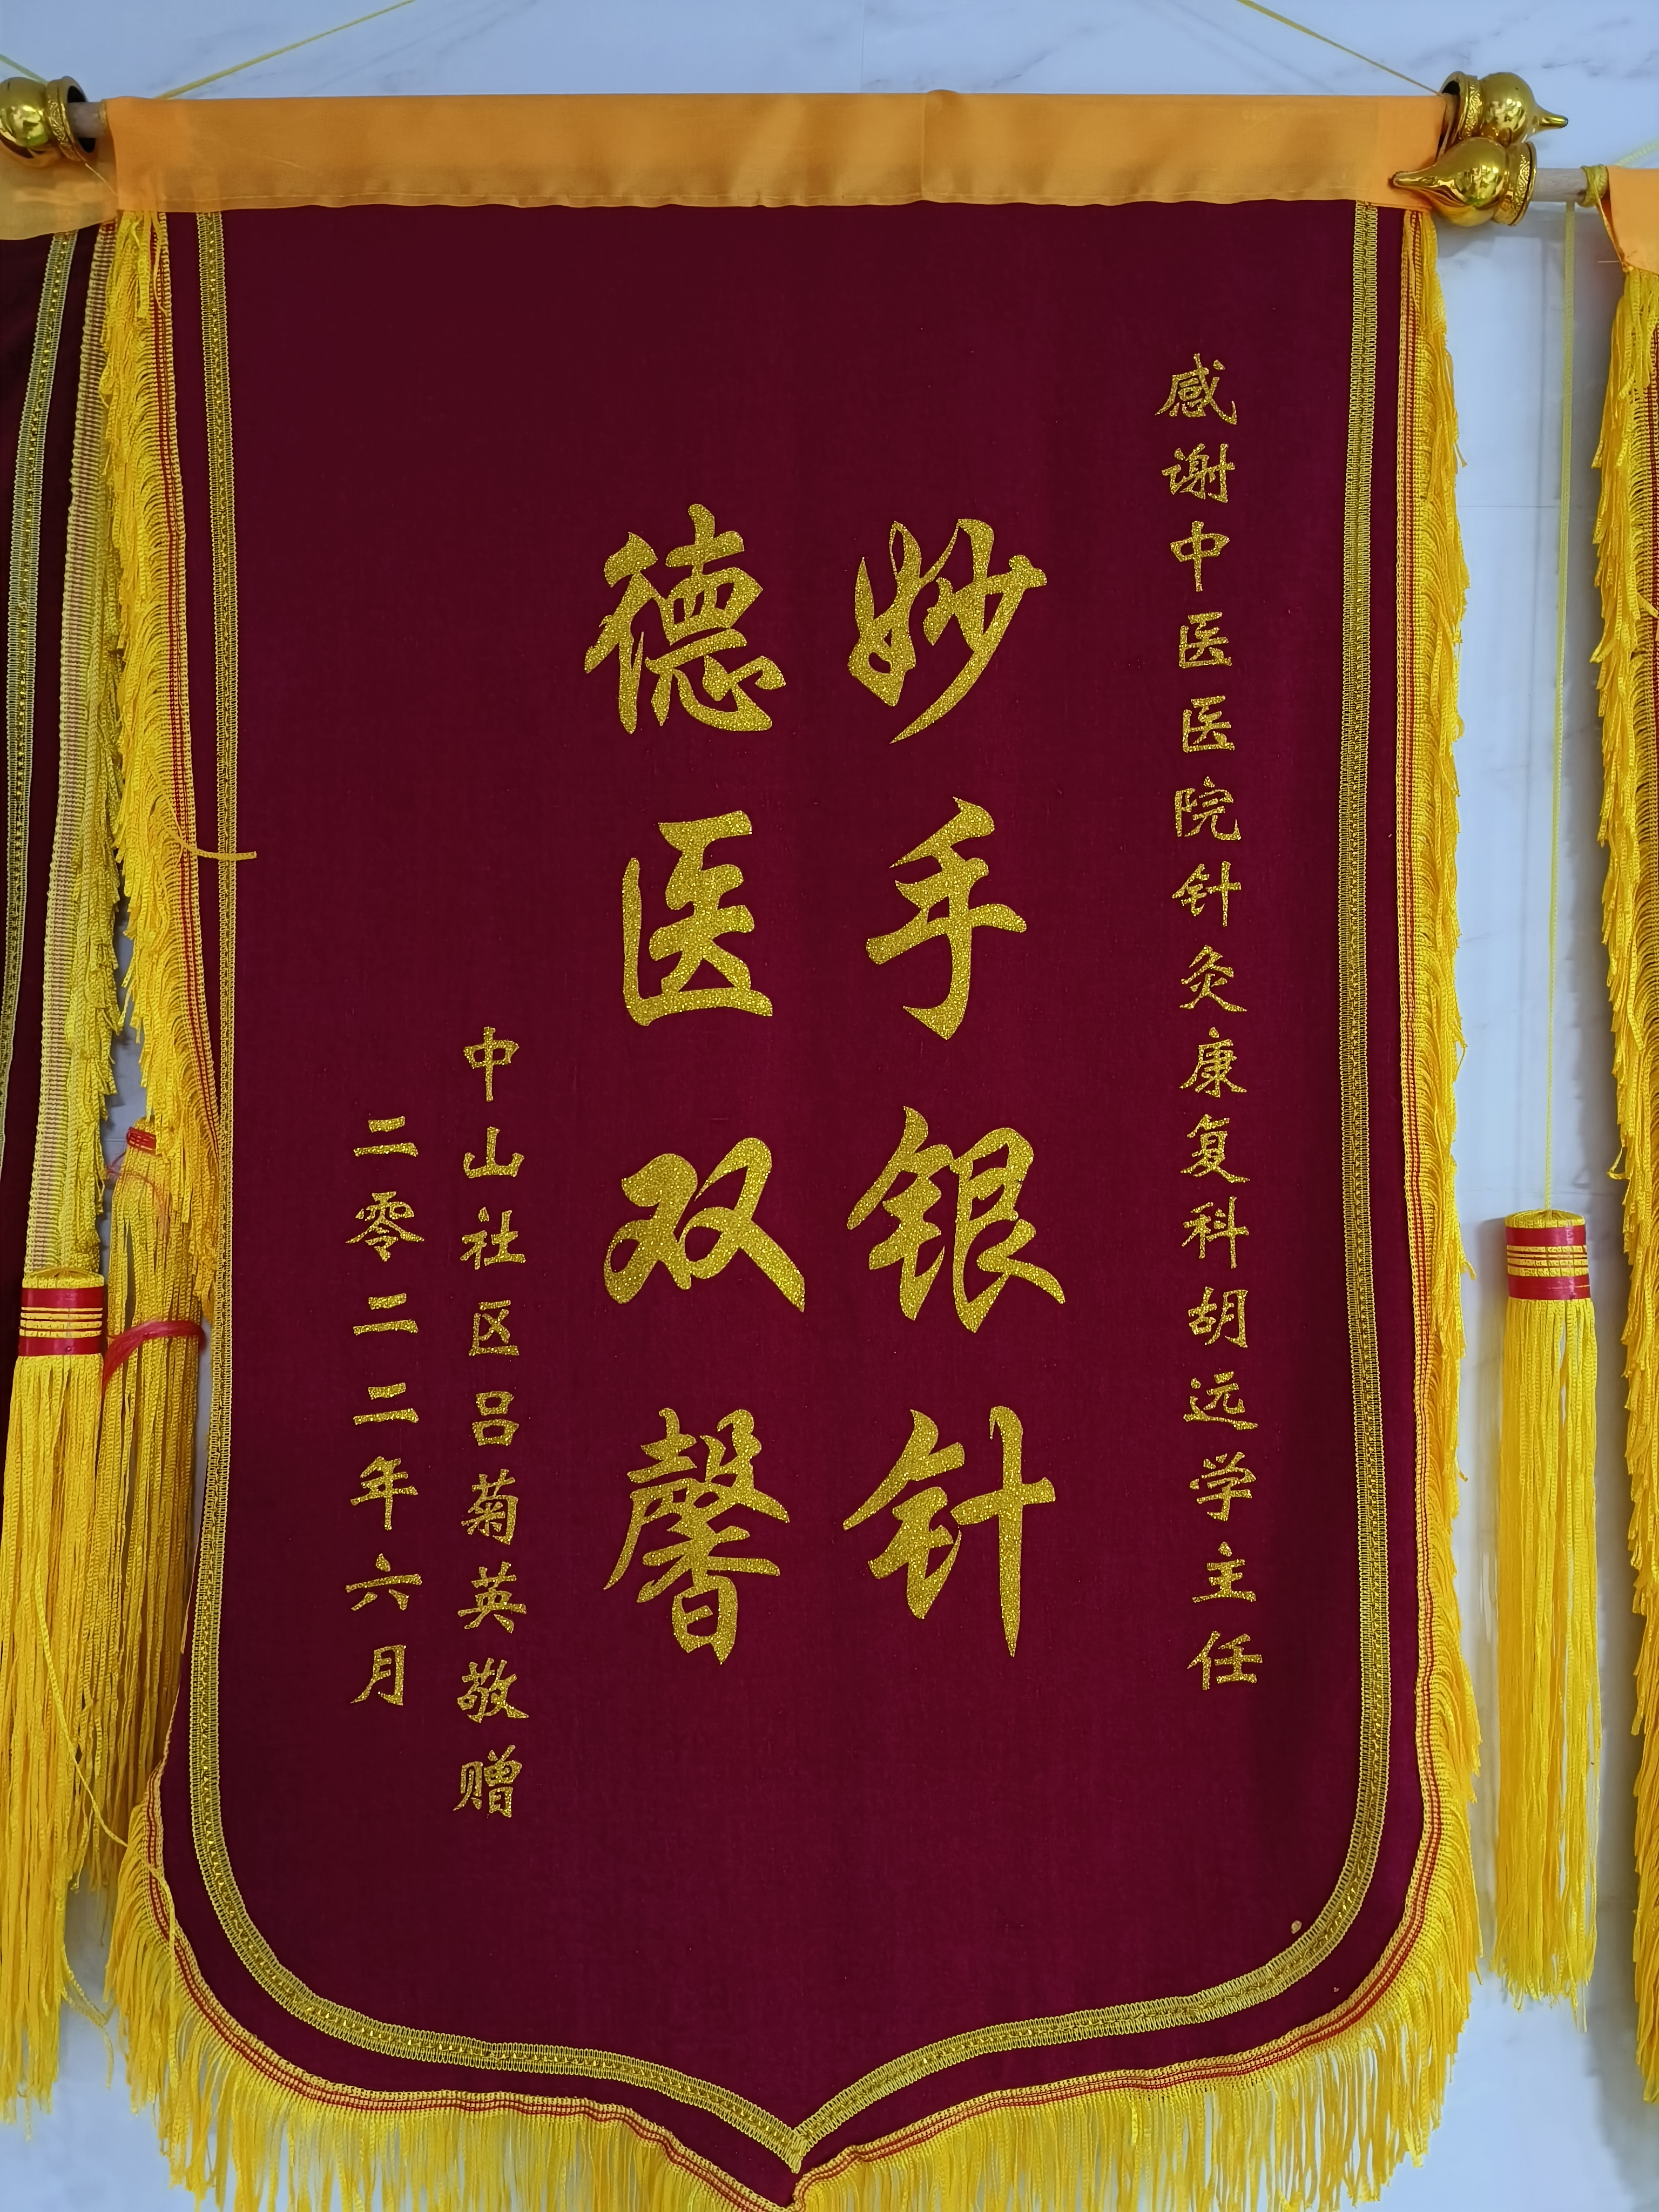 感谢中医医院针灸康复科胡远学主任
妙手银针
德医双馨
中山社区吕菊英敬赠
二零二二年六月